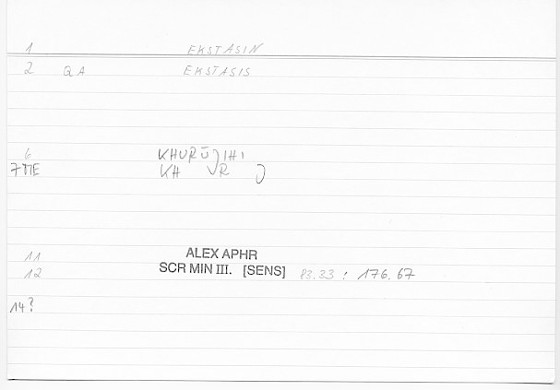 1 EKSTASIN
2 QA EKSTASIS
6 KHURŪJIHI
7 ME KH W R J
11 ALEX APHR
12 SCR MIN III. [SENS] 83.33 : 176.67
14?